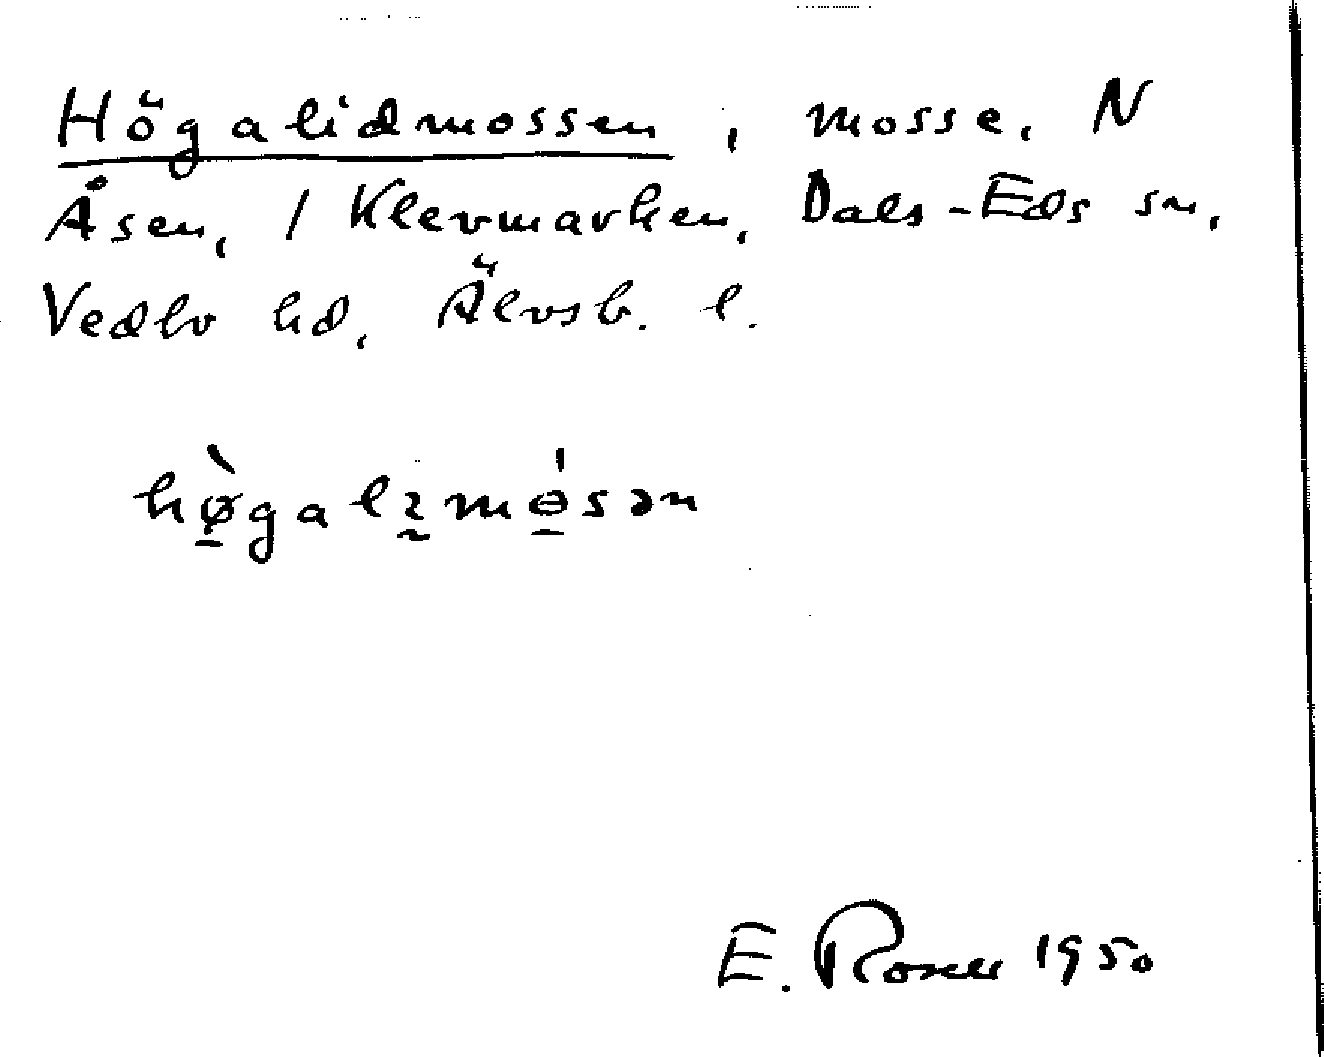 Högalidmossen, mosse, N
Åsen, 1 Klevmarken, Dals-Eds sn,
Vedbo hd, Älvsb. l.
hø̱̀galɩ̰mɵ̱́sən
E. Rosell 1950